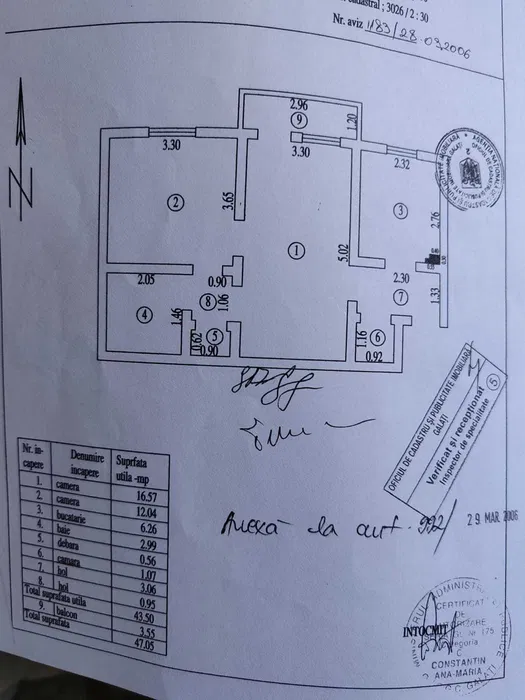 cadastral ; 3026 / 2 ; 30
Nr. aviz 1183 / 28.03.2006
2.96
9
1.20
3.30
3.30
2.32
N
2
3.65
3
2.76
1
5.02
2.05
0.90
2.30
8
1.06
7
1.33
4
1.46
0.62
5
0.90
1.16
6
0.92
AGENŢIA NAŢIONALĂ DE CADASTRU ŞI PUBLICITATE IMOBILIARĂ
OFICIUL DE CADASTRU ŞI PUBLICITATE IMOBILIARĂ
GALAŢI
Verificat şi recepţionat
Inspector de specialitate
5
Anexă la aut. 992/
29 MAR 2006
Nr. in-
capere
Denumire
incapere
Suprfata
utila -mp
1. camera 16.57
2. camera 12.04
3. bucatarie 6.26
4. baie 2.99
5. debara 0.56
6. camara 1.07
7. hol 3.06
8. hol 0.95
Total suprafata utila 43.50
9. balcon 3.55
Total suprafata 47.05
INTOCMIT
CERTIFICAT
DE
AUTORIZARE
Nr. 175
Categoria
C
CONSTANTIN
ANA-MARIA
GALAŢI